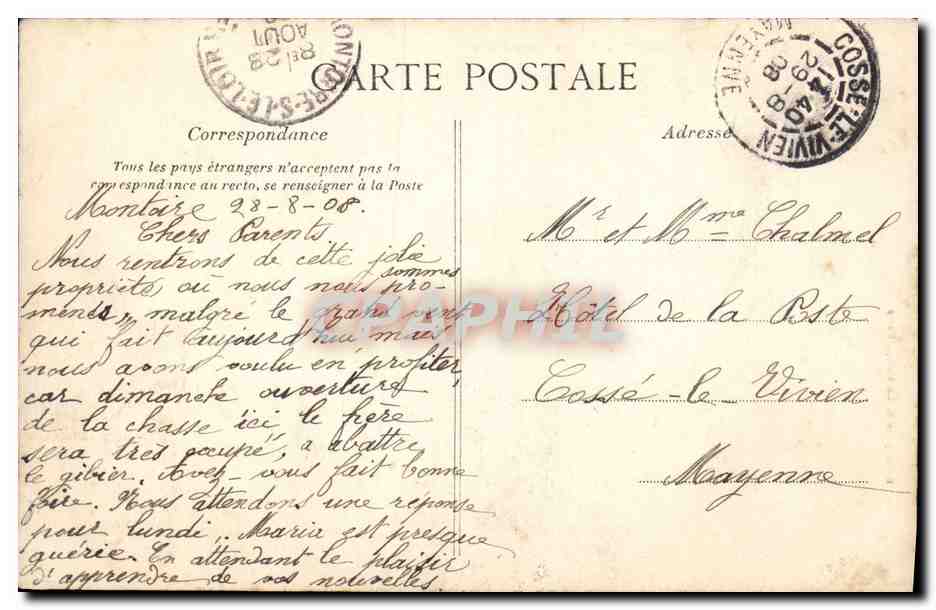 MONTOIRE-S-LE-LOIR
8E 28
AOUT
CARTE POSTALE
COSSÉ-LE-VIVIEN
MAYENNE
4 40
29-8
08
Correspondance
Adresse
Tous les pays étrangers n'acceptent pas la
correspondance au recto, se renseigner à la Poste
Montoire 28-8-08.
Chers Parents
Nous rentrons de cette jolie
propriété où nous nous sommes pro-
menés, malgré le grand vent
qui fait aujourd'hui mais
nous avons voulu en profiter,
car dimanche ouverture
de la chasse ici le frère
sera très occupé, a abattre
le gibier. Avez-vous fait bonne
foire. Nous attendons une réponse
pour lundi. Maria est presque
guérie. En attendant le plaisir
d'apprendre de vos nouvelles.
Mr et Mme Chalmel
Hôtel de la Poste
Cossé-le-Vivien
Mayenne
CPAPHIL